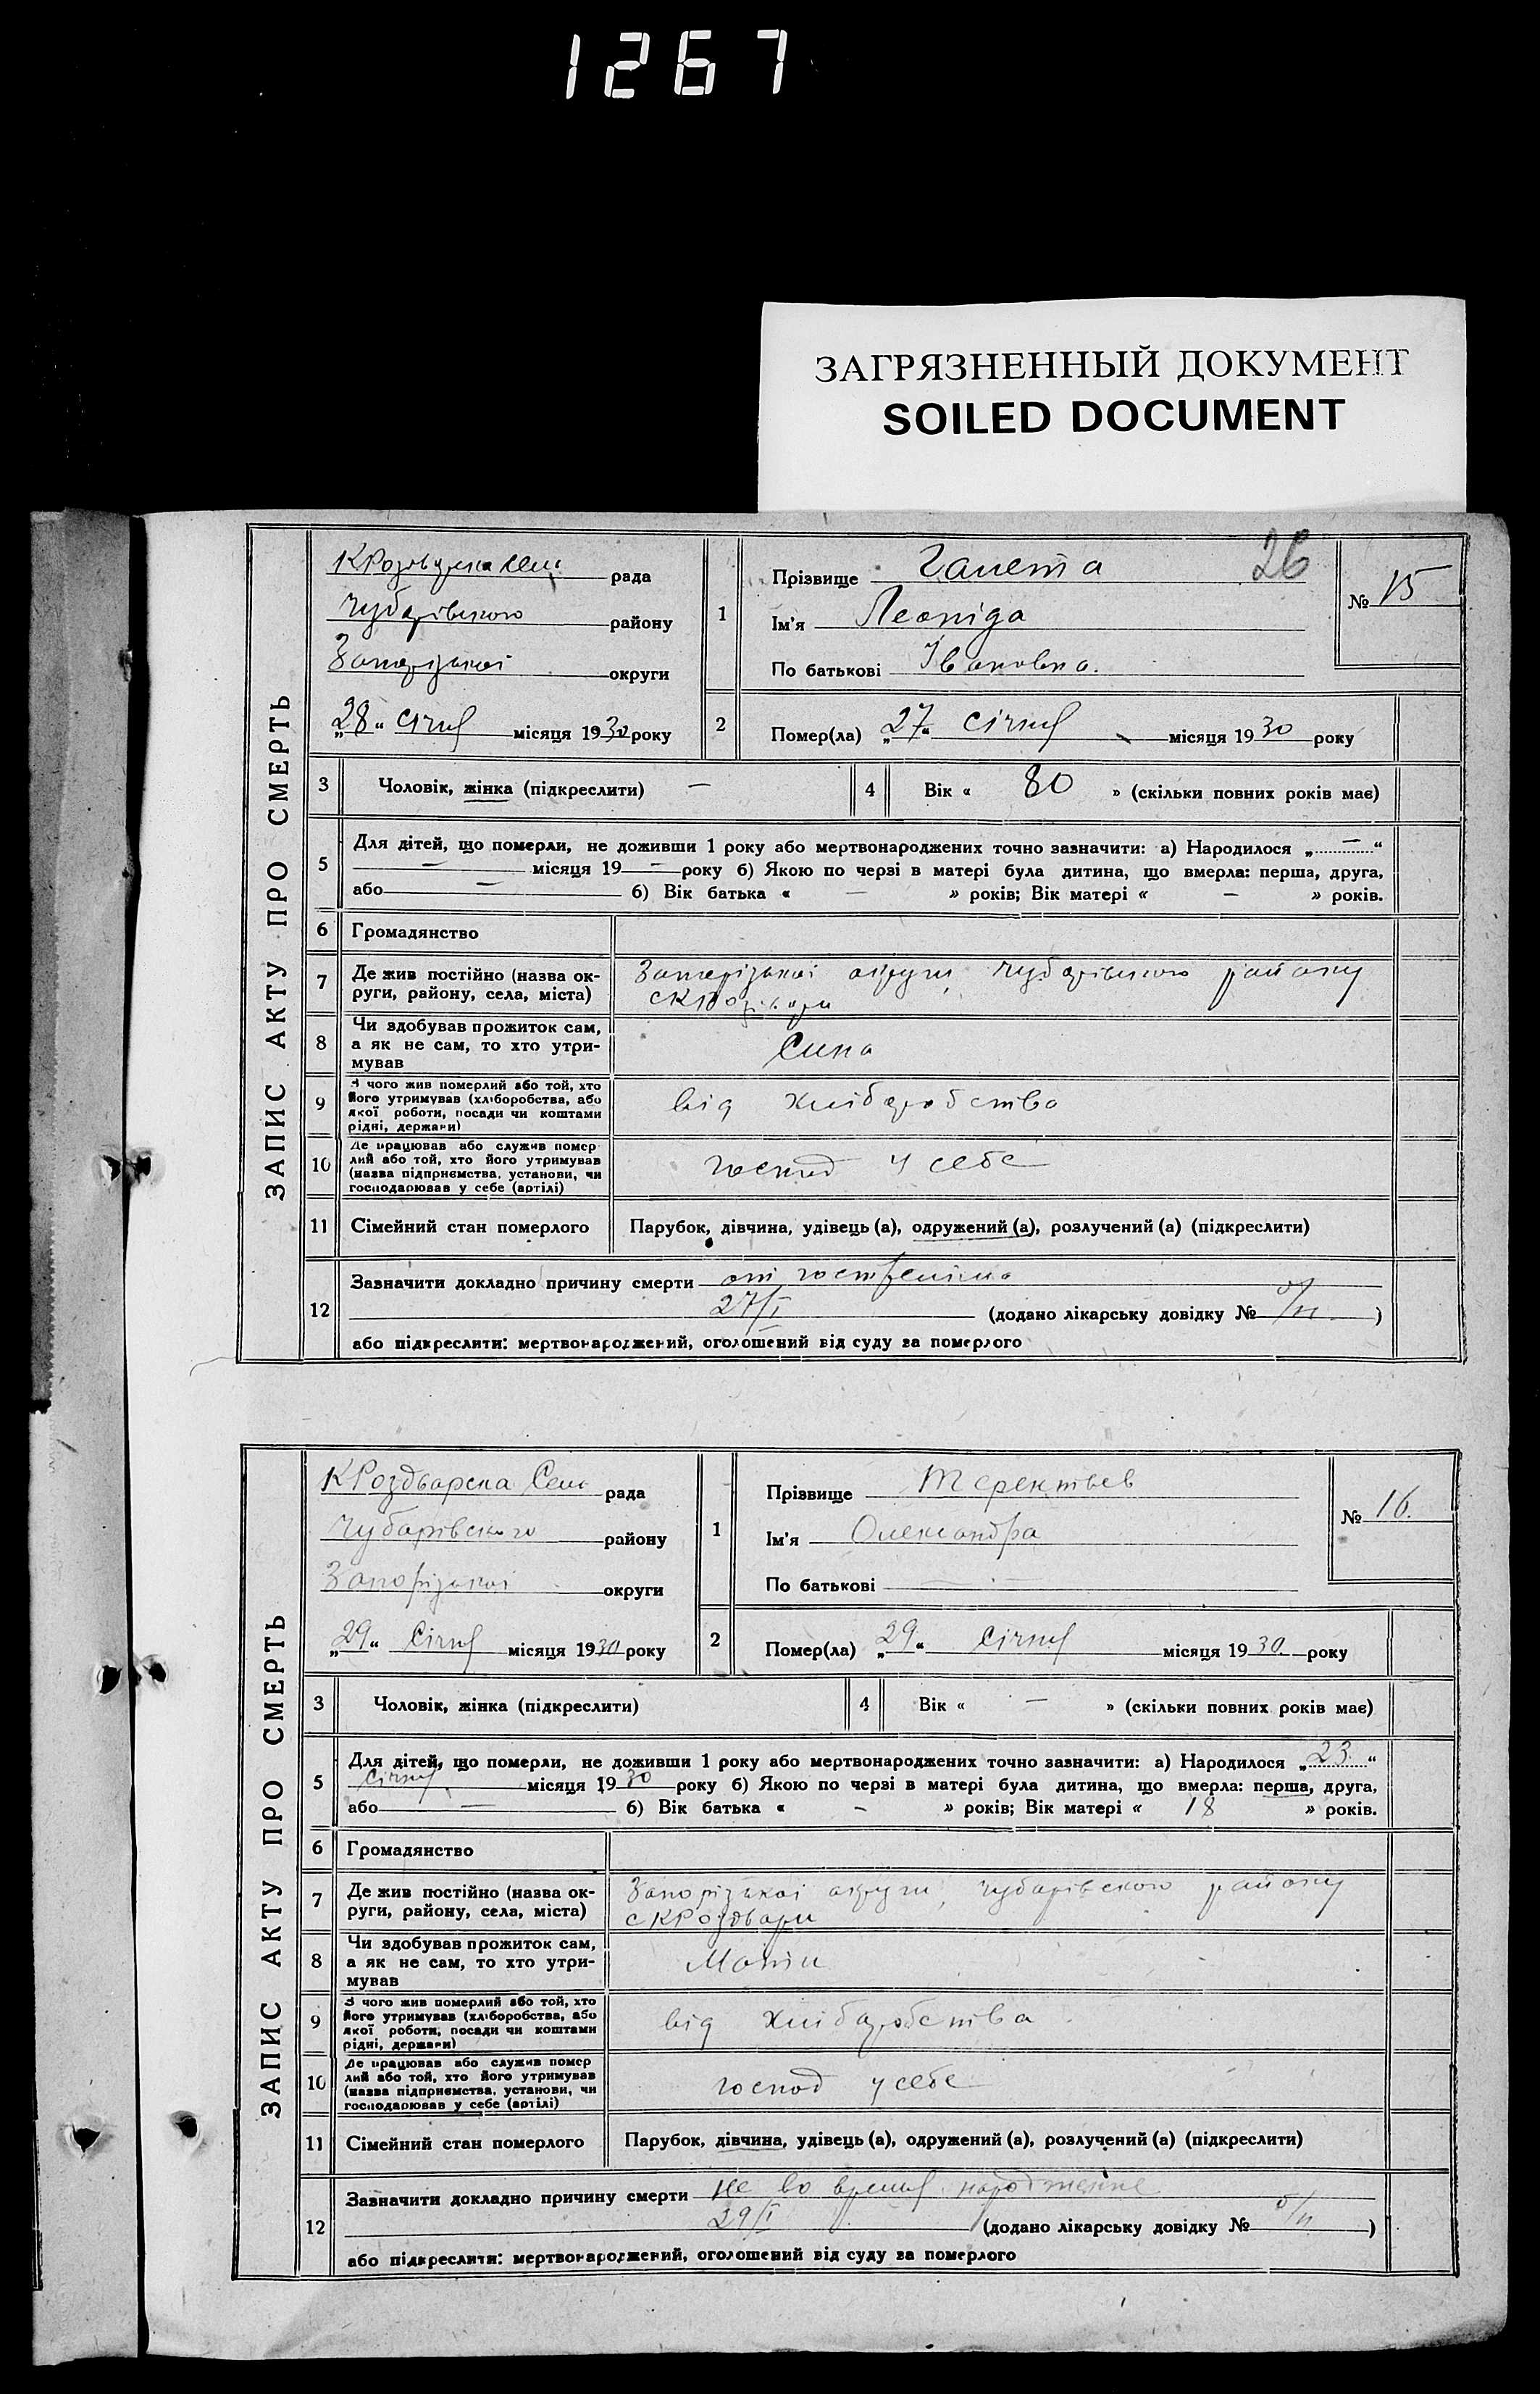 1267
ЗАГРЯЗНЕННЫЙ ДОКУМЕНТ
SOILED DOCUMENT
ЗАПИС АКТУ ПРО СМЕРТЬ
рада
Чубарівського району
Запорізької округи
„28“ Січня місяця 1930 року
1
Прізвище Галета 26
Ім'я Леоніда
По батькові Івановна.
№ 15
2
Помер(ла) „27“ січня місяця 1930 року
3 Чоловік, жінка (підкреслити) —
4 Вік « 80 » (скільки повних років має)
5 Для дітей, що померли, не доживши 1 року або мертвонароджених точно зазначити: а) Народилося „ — “
— місяця 19 — року б) Якою по черзі в матері була дитина, що вмерла: перша, друга,
або — б) Вік батька « — » років; Вік матері « — » років.
6 Громадянство
7 Де жив постійно (назва ок-
руги, району, села, міста)
Запорізької округи, Чубарівського району
8 Чи здобував прожиток сам,
а як не сам, то хто утри-
мував
Сина
9 З чого жив померлий або той, хто
його утримував (хліборобства, або
якої роботи, посади чи коштами
рідні, держави)
від хліборобства
10 Де працював або служив помер
лий або той, хто його утримував
(назва підприємства, установи, чи
господарював у себе (артілі)
господ у себе
11 Сімейний стан померлого
Парубок, дівчина, удівець (а), одружений (а), розлучений (а) (підкреслити)
12 Зазначити докладно причину смерти
27/I (додано лікарську довідку № б/н )
або підкреслити: мертвонароджений, оголошений від суду за померлого
ЗАПИС АКТУ ПРО СМЕРТЬ
КРоздварска Сель рада
Чубарівського району
Запорізької округи
„29“ Січня місяця 1930 року
1
Прізвище Терентьев
Ім'я Олександра
По батькові —
№ 16.
2
Помер(ла) „29“ Січня місяця 1930. року
3 Чоловік, жінка (підкреслити)
4 Вік « — » (скільки повних років має)
5 Для дітей, що померли, не доживши 1 року або мертвонароджених точно зазначити: а) Народилося „23.“
Січня місяця 1930 року б) Якою по черзі в матері була дитина, що вмерла: перша, друга,
або — б) Вік батька « – » років; Вік матері « 18 » років.
6 Громадянство
7 Де жив постійно (назва ок-
руги, району, села, міста)
Запорізької округи, Чубарівського району
с КРоздвари
8 Чи здобував прожиток сам,
а як не сам, то хто утри-
мував
9 З чого жив померлий або той, хто
його утримував (хліборобства, або
якої роботи, посади чи коштами
рідні, держави)
від хліборобства
10 Де працював або служив помер
лий або той, хто його утримував
(назва підприємства, установи, чи
господарював у себе (артілі)
господ у себе
11 Сімейний стан померлого
Парубок, дівчина, удівець (а), одружений (а), розлучений (а) (підкреслити)
12 Зазначити докладно причину смерти не во время
29/I (додано лікарську довідку № б/н )
або підкреслити: мертвонароджений, оголошений від суду за померлого